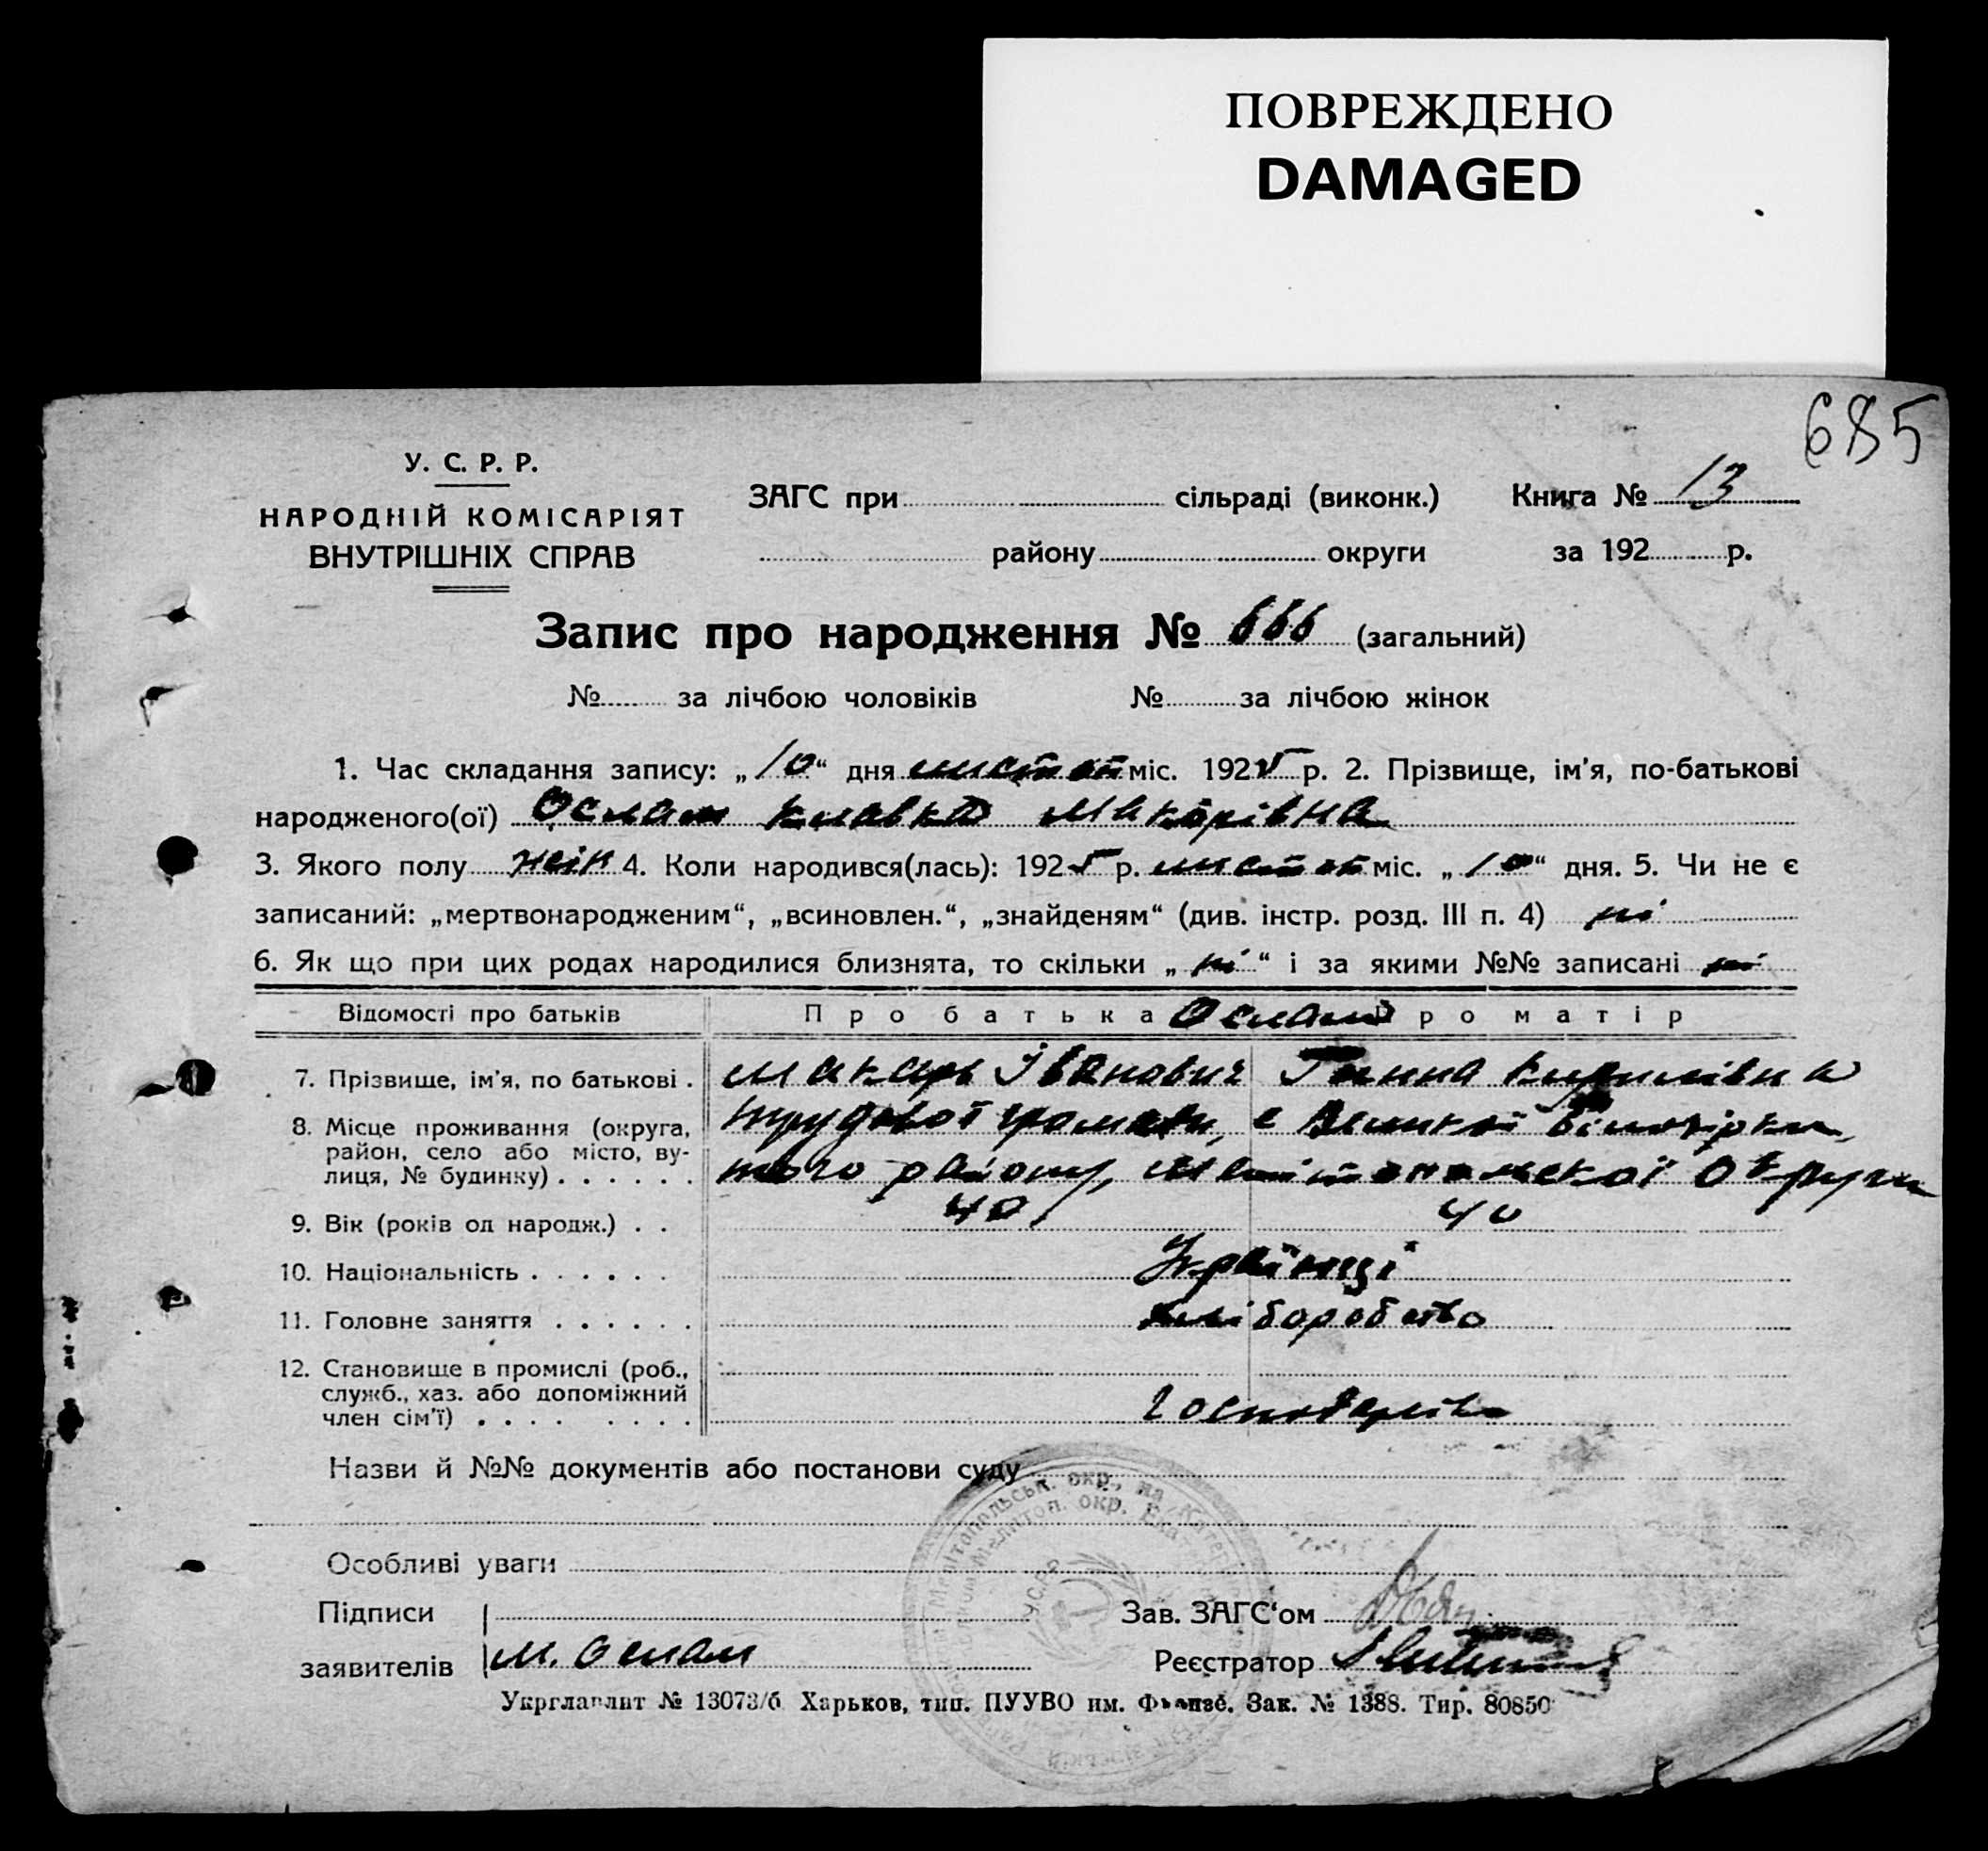 ПОВРЕЖДЕНО
DAMAGED
685
У. С. Р. Р.
НАРОДНІЙ КОМІСАРІЯТ
ВНУТРІШНІХ СПРАВ
ЗАГС при сільраді (виконк.) Книга № 13
району округи за 192 р.
Запис про народження № 666 (загальний)
№ за лічбою чоловіків № за лічбою жінок
1. Час складання запису: „10“ дня листоп міс. 1925 р. 2. Прізвище, ім'я, по-батькові
народженого(ої) Ослам Клавка Макарівна
3. Якого полу жін 4. Коли народився(лась): 1925 р. листоп міс. „10“ дня. 5. Чи не є
записаний: „мертвонародженим“, „всиновлен.“, „знайденям“ (див. інстр. розд. III п. 4) ні
6. Як що при цих родах народилися близнята, то скільки „ні“ і за якими №№ записані ні
Відомості про батьків Про батька Ослам Про матір
7. Прізвище, ім'я, по батькові . Макарь Іванович Ганна Кирилівна
8. Місце проживання (округа, район, село або місто, вулиця, № будинку) . . . . . . Трудової громади, с Великої Білозірки,
того району, Мелітопольскої Округи
9. Вік (років од народж.) . . 40 40
10. Національність . . . . . . Українці
11. Головне заняття . . . . . . хліборобство
12. Становище в промислі (роб.,
служб., хаз. або допоміжний
член сім'ї) . . . . . . . .
Назви й №№ документів або постанови суду
Мелітопольськ. окр., на Катер
Мелитоп. окр. Екат
УСРР
Особливі уваги
Підписи Зав. ЗАГС'ом
заявителів М. Ослам Реєстратор
Укрглавлит № 13073/б Харьков, тип. ПУУВО им. Фрунзе. Зак. № 1388. Тир. 80850